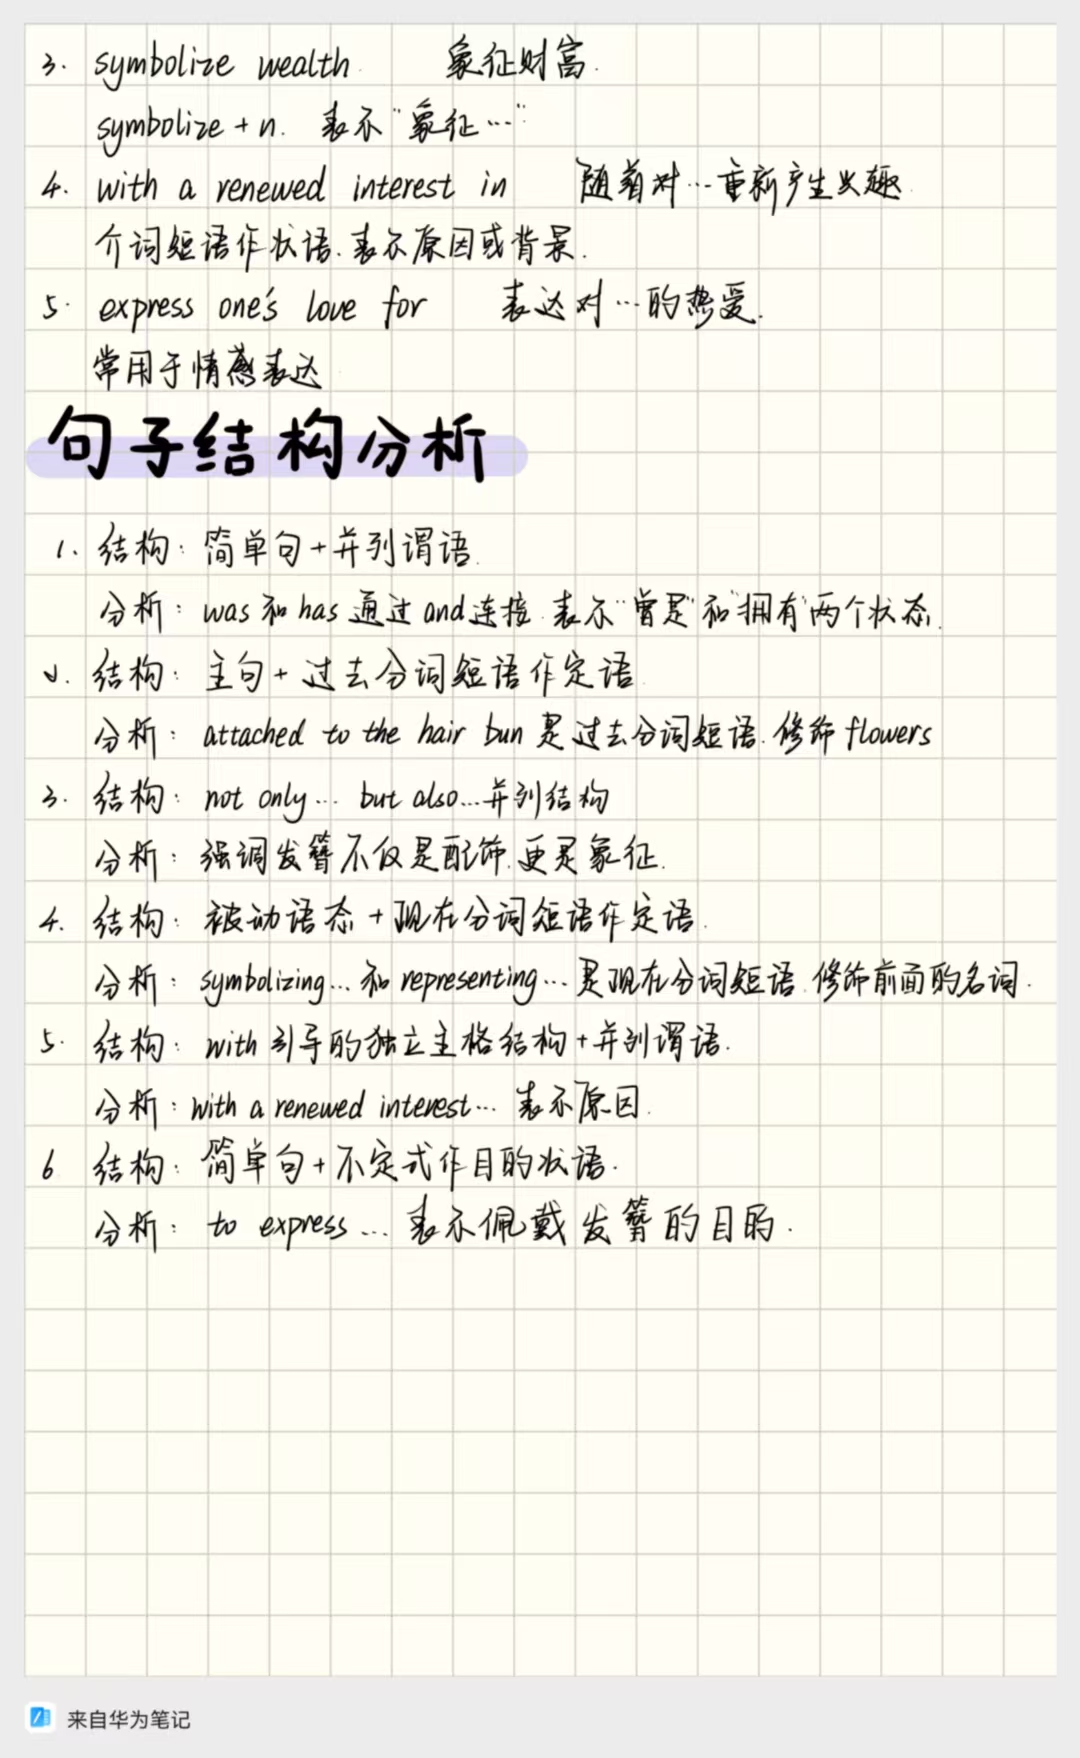 3. symbolize wealth 象征财富.
symbolize + n. 表示"象征…"
4. with a renewed interest in 随着对…重新产生兴趣.
介词短语作状语.表示原因或背景.
5. express one's love for 表达对…的热爱.
常用于情感表达
句子结构分析
1. 结构: 简单句+并列谓语.
分析: was 和 has 通过 and 连接.表示"曾是"和"拥有"两个状态.
2. 结构: 主句+过去分词短语作定语.
分析: attached to the hair bun 是过去分词短语.修饰 flowers
3. 结构: not only… but also…并列结构
分析: 强调发簪不仅是配饰.更是象征.
4. 结构: 被动语态+现在分词短语作定语.
分析: symbolizing… 和 representing… 是现在分词短语.修饰前面的名词.
5. 结构: with 引导的独立主格结构+并列谓语.
分析: with a renewed interest… 表示原因.
6 结构: 简单句+不定式作目的状语.
分析: to express … 表示佩戴发簪的目的.
来自华为笔记